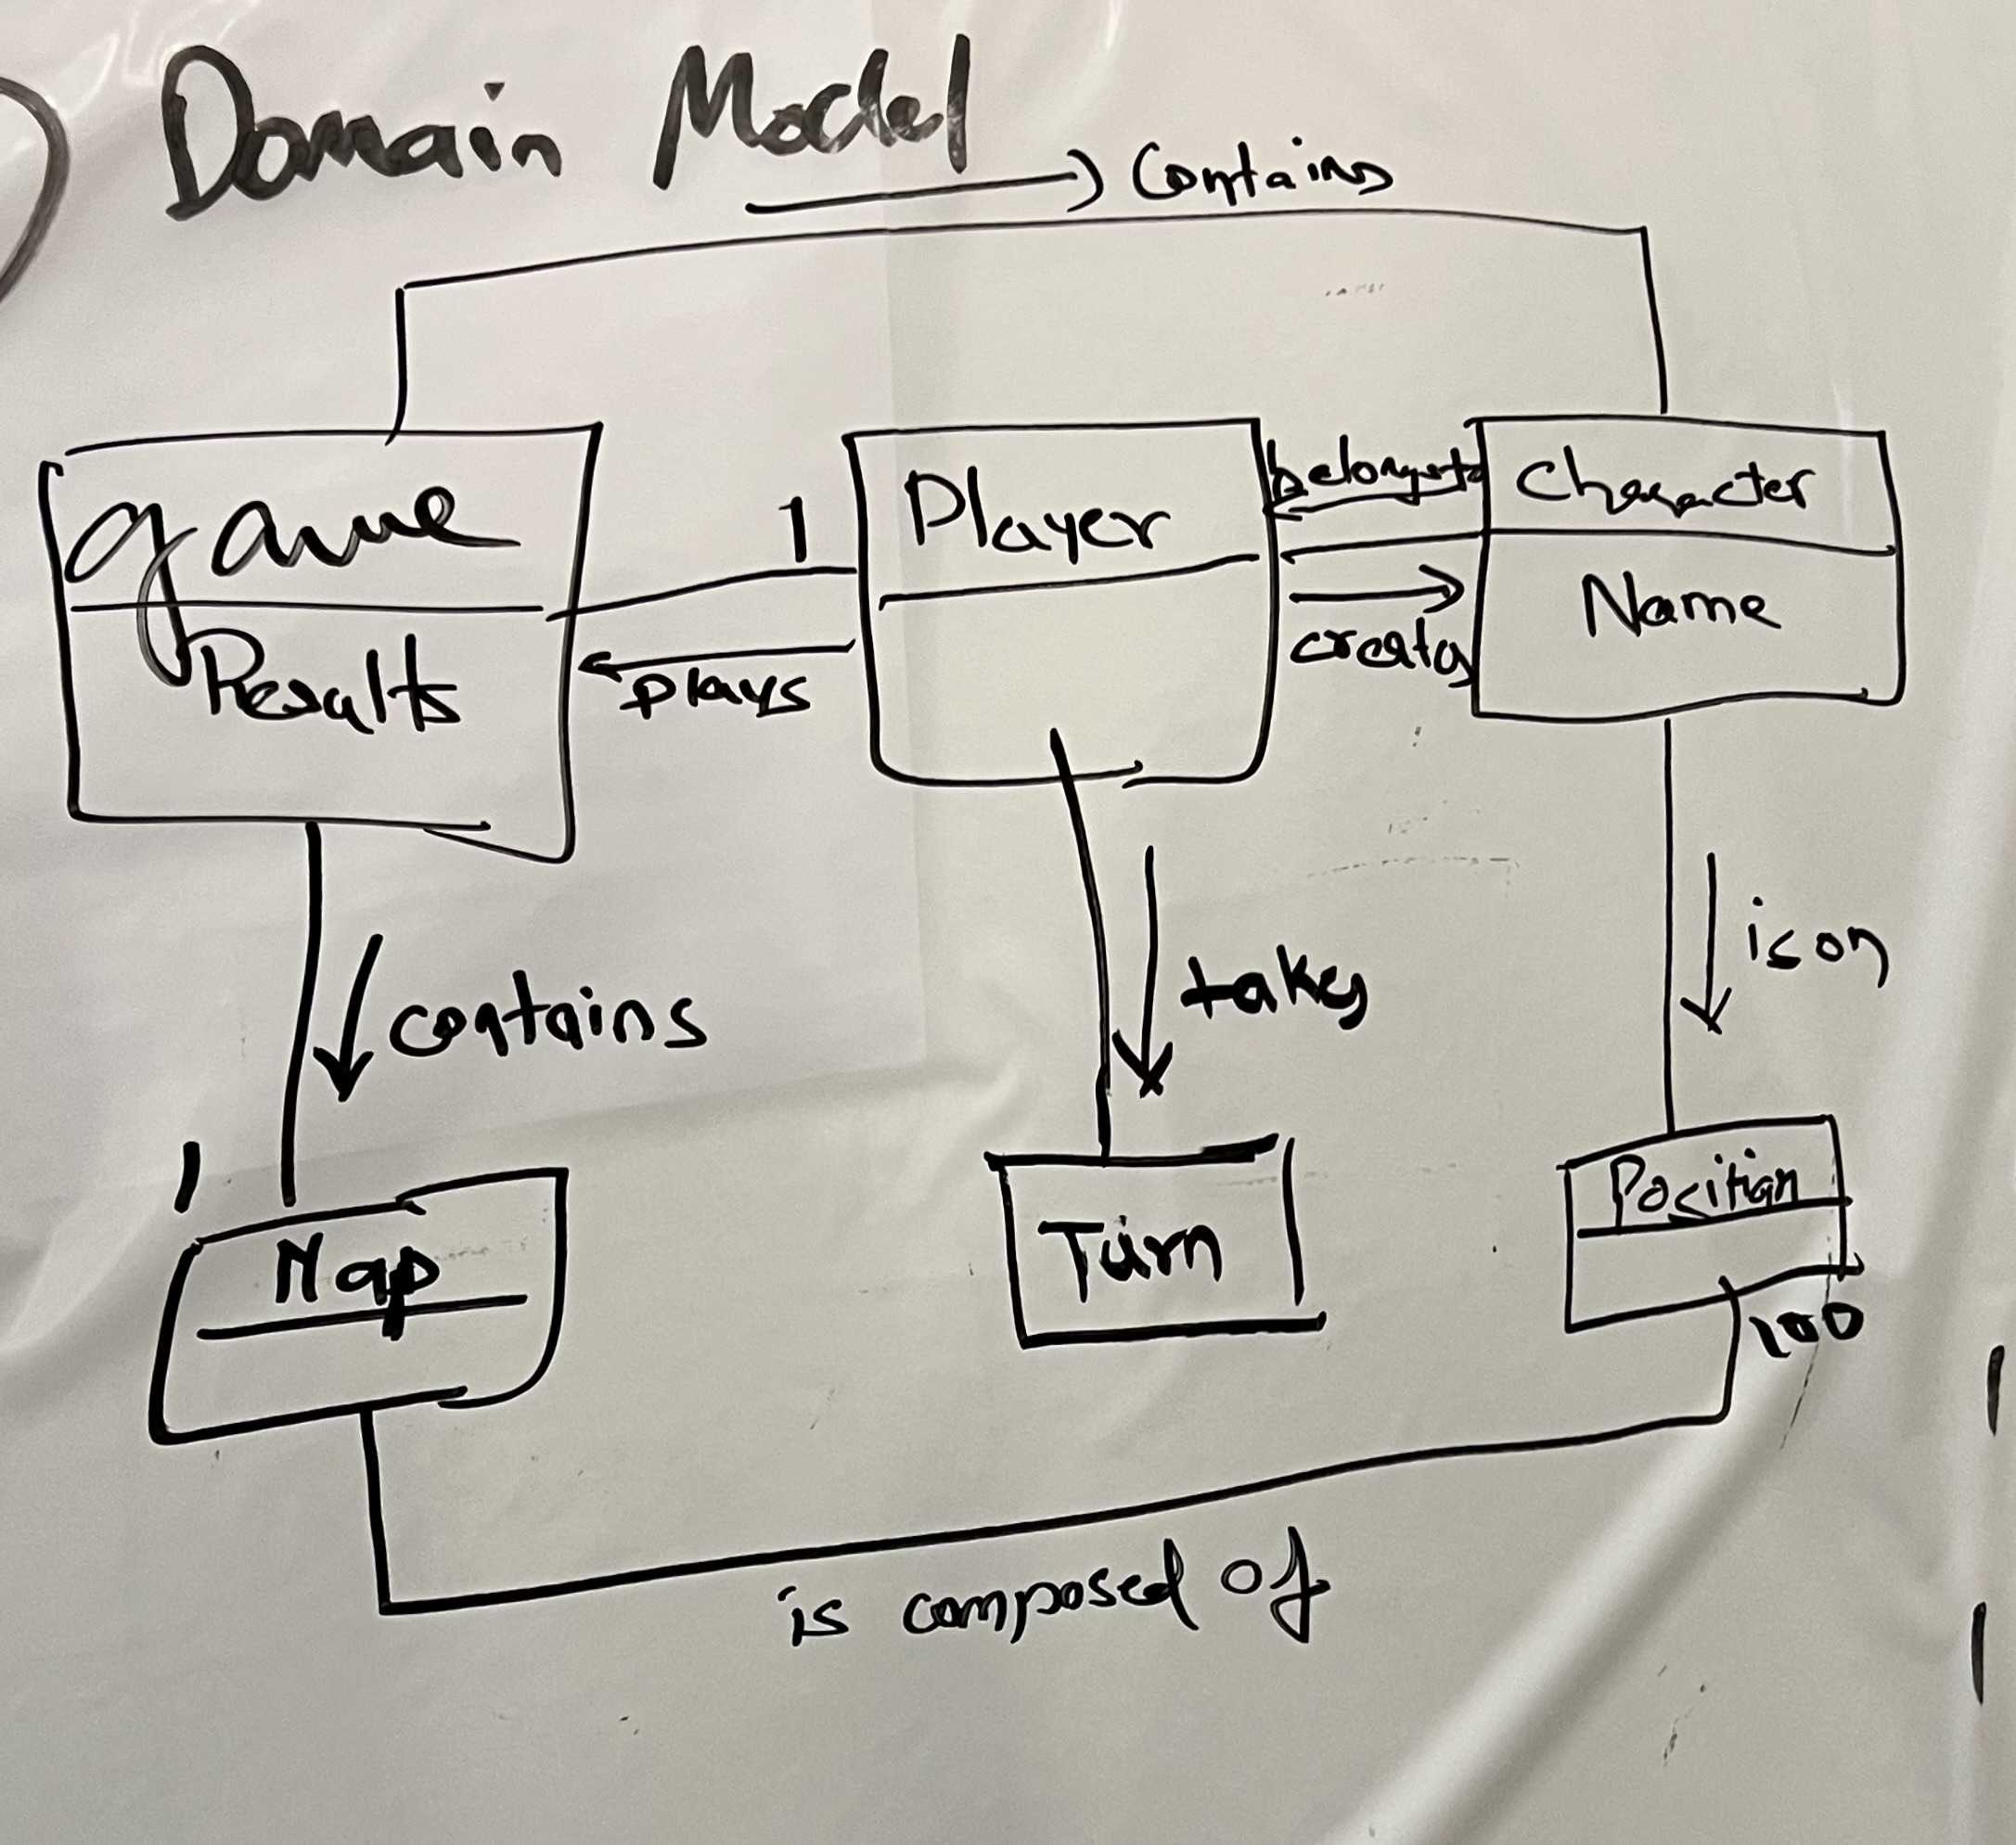 Domain Model
→ Contains
game
Results
1
plays
Player
belongsto
creates
Character
Name
contains
takes
is on
1
Map
Turn
Position
100
is composed of